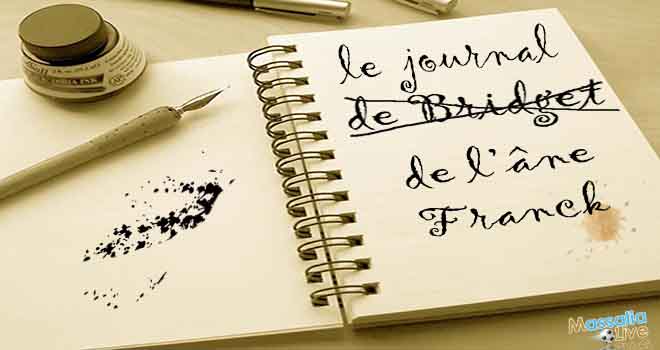 le journal
de Bridget
de l'âne
Franck
Massalia
Live